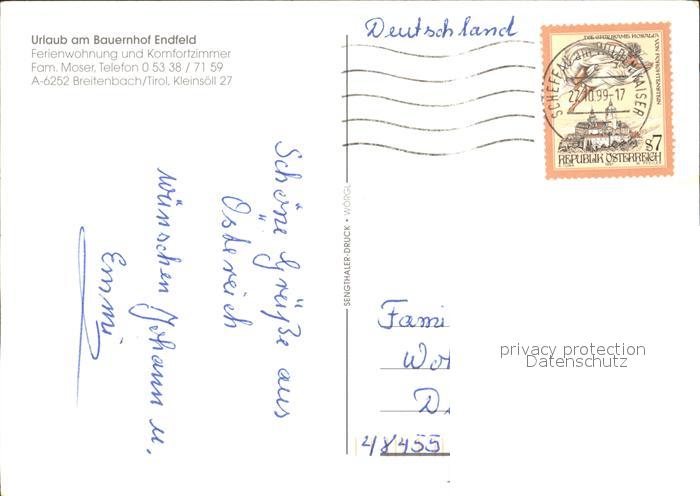 Urlaub am Bauernhof Endfeld
Ferienwohnung und Komfortzimmer
Fam. Moser, Telefon 0 53 38 / 71 59
A-6252 Breitenbach/Tirol, Kleinsöll 27
Deutschland
22.10.99-17
KAISER
S7
REPUBLIK ÖSTERREICH
Schöne Grüße aus
Österreich
wünschen Johann u.
Emmi
SENGTHALER-DRUCK • WÖRGL
Fami
Wo
D
48455
privacy protection
Datenschutz